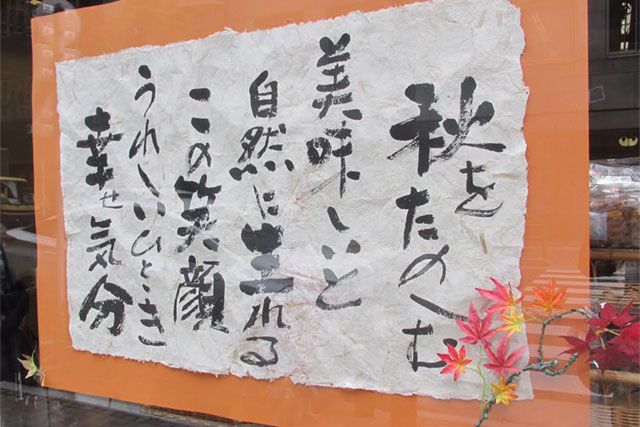 秋をたのしむ
美味しいと
自然に生れる
この笑顔
うれしいひととき
幸せ気分